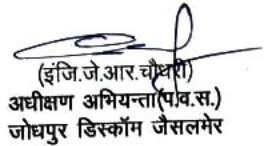 (इंजि.जे.आर.चौधरी)
अधीक्षण अभियन्ता(प.व.स.)
जोधपुर डिस्कॉम जैसलमेर